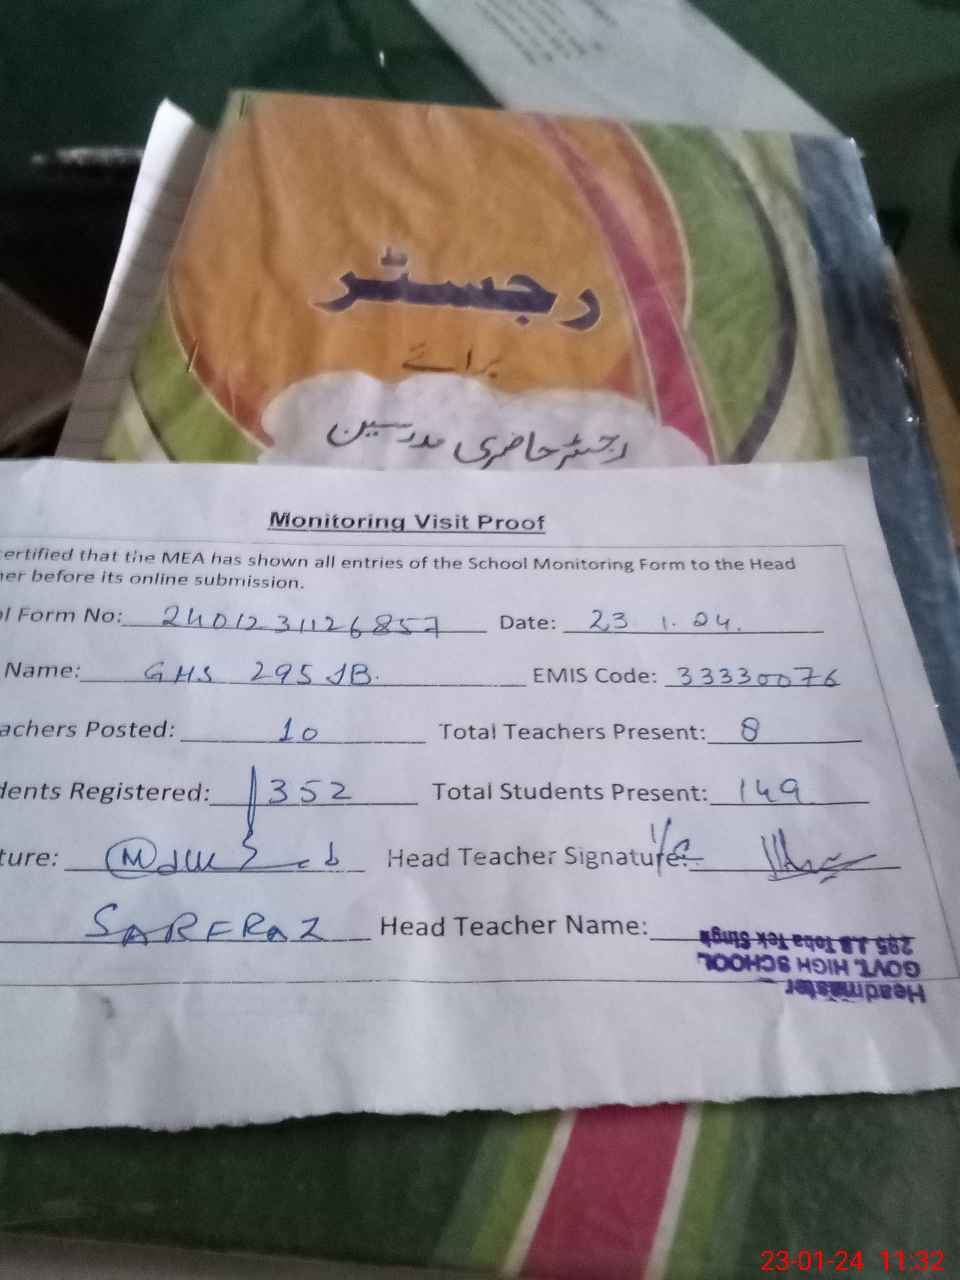 رجسٹر
برائے
رجسٹر حاضری مدرسین
Monitoring Visit Proof
ertified that the MEA has shown all entries of the School Monitoring Form to the Head
er before its online submission.
l Form No: 2401231126857 Date: 23.1.24.
Name: GHS 295 JB. EMIS Code: 33330076
achers Posted: 10 Total Teachers Present: 8
dents Registered: 352 Total Students Present: 149
ture: Head Teacher Signature:
SARFRAZ Head Teacher Name:
Headmaster
GOVT. HIGH SCHOOL
295 J.B Toba Tek Singh
23-01-24 11:32